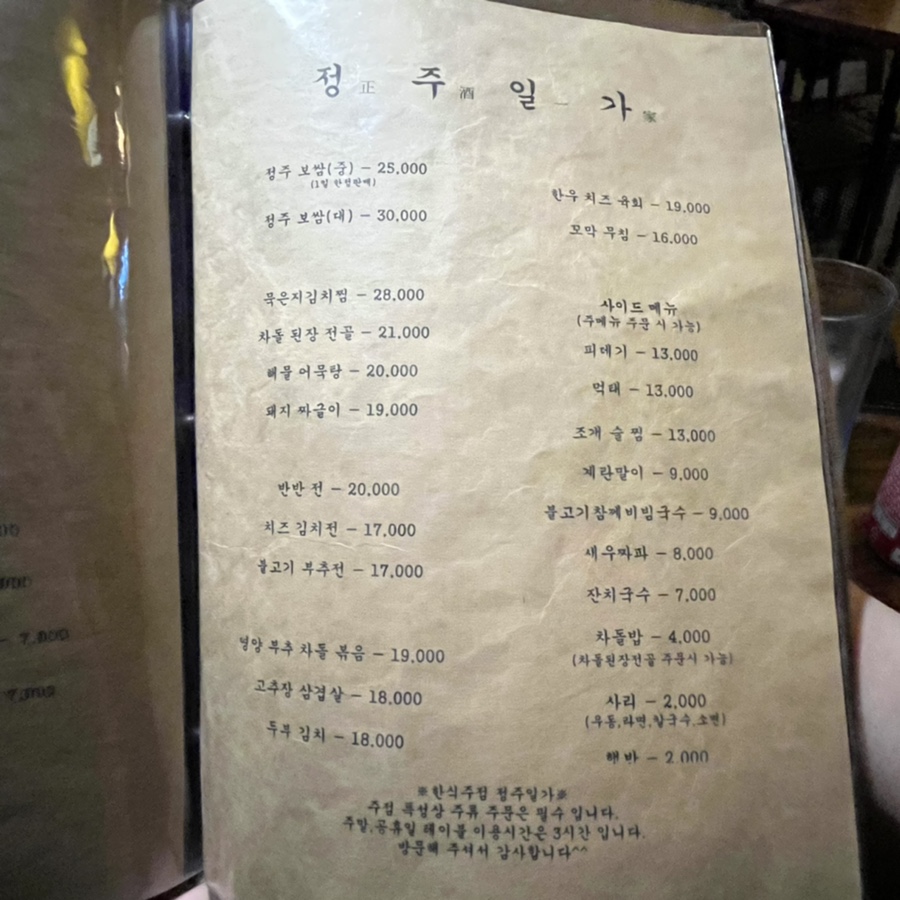 정 正 주 酒 일 一 가 家
정주 보쌈(중) - 25,000
(1일 한정판매)
정주 보쌈(대) - 30,000
묵은지김치찜 - 28,000
차돌 된장 전골 - 21,000
해물 어묵탕 - 20,000
돼지 짜글이 - 19,000
반반 전 - 20,000
치즈 김치전 - 17,000
불고기 부추전 - 17,000
청양 부추 차돌 볶음 - 19,000
고추장 삼겹살 - 18,000
두부 김치 - 18,000
한우 치즈 육회 - 19,000
꼬막 무침 - 16,000
사이드 메뉴
(주메뉴 주문 시 가능)
피데기 - 13,000
먹태 - 13,000
조개 술 찜 - 13,000
계란말이 - 9,000
불고기참깨비빔국수 - 9,000
새우짜파 - 8,000
잔치국수 - 7,000
차돌밥 - 4,000
(차돌된장전골 주문시 가능)
사리 - 2,000
(우동,라면,칼국수,소면)
햇반 - 2,000
※한식주점 정주일가※
주점 특성상 주류 주문은 필수 입니다.
주말,공휴일 테이블 이용시간은 3시간 입니다.
방문해 주셔서 감사합니다^^
- 7,000
7,000